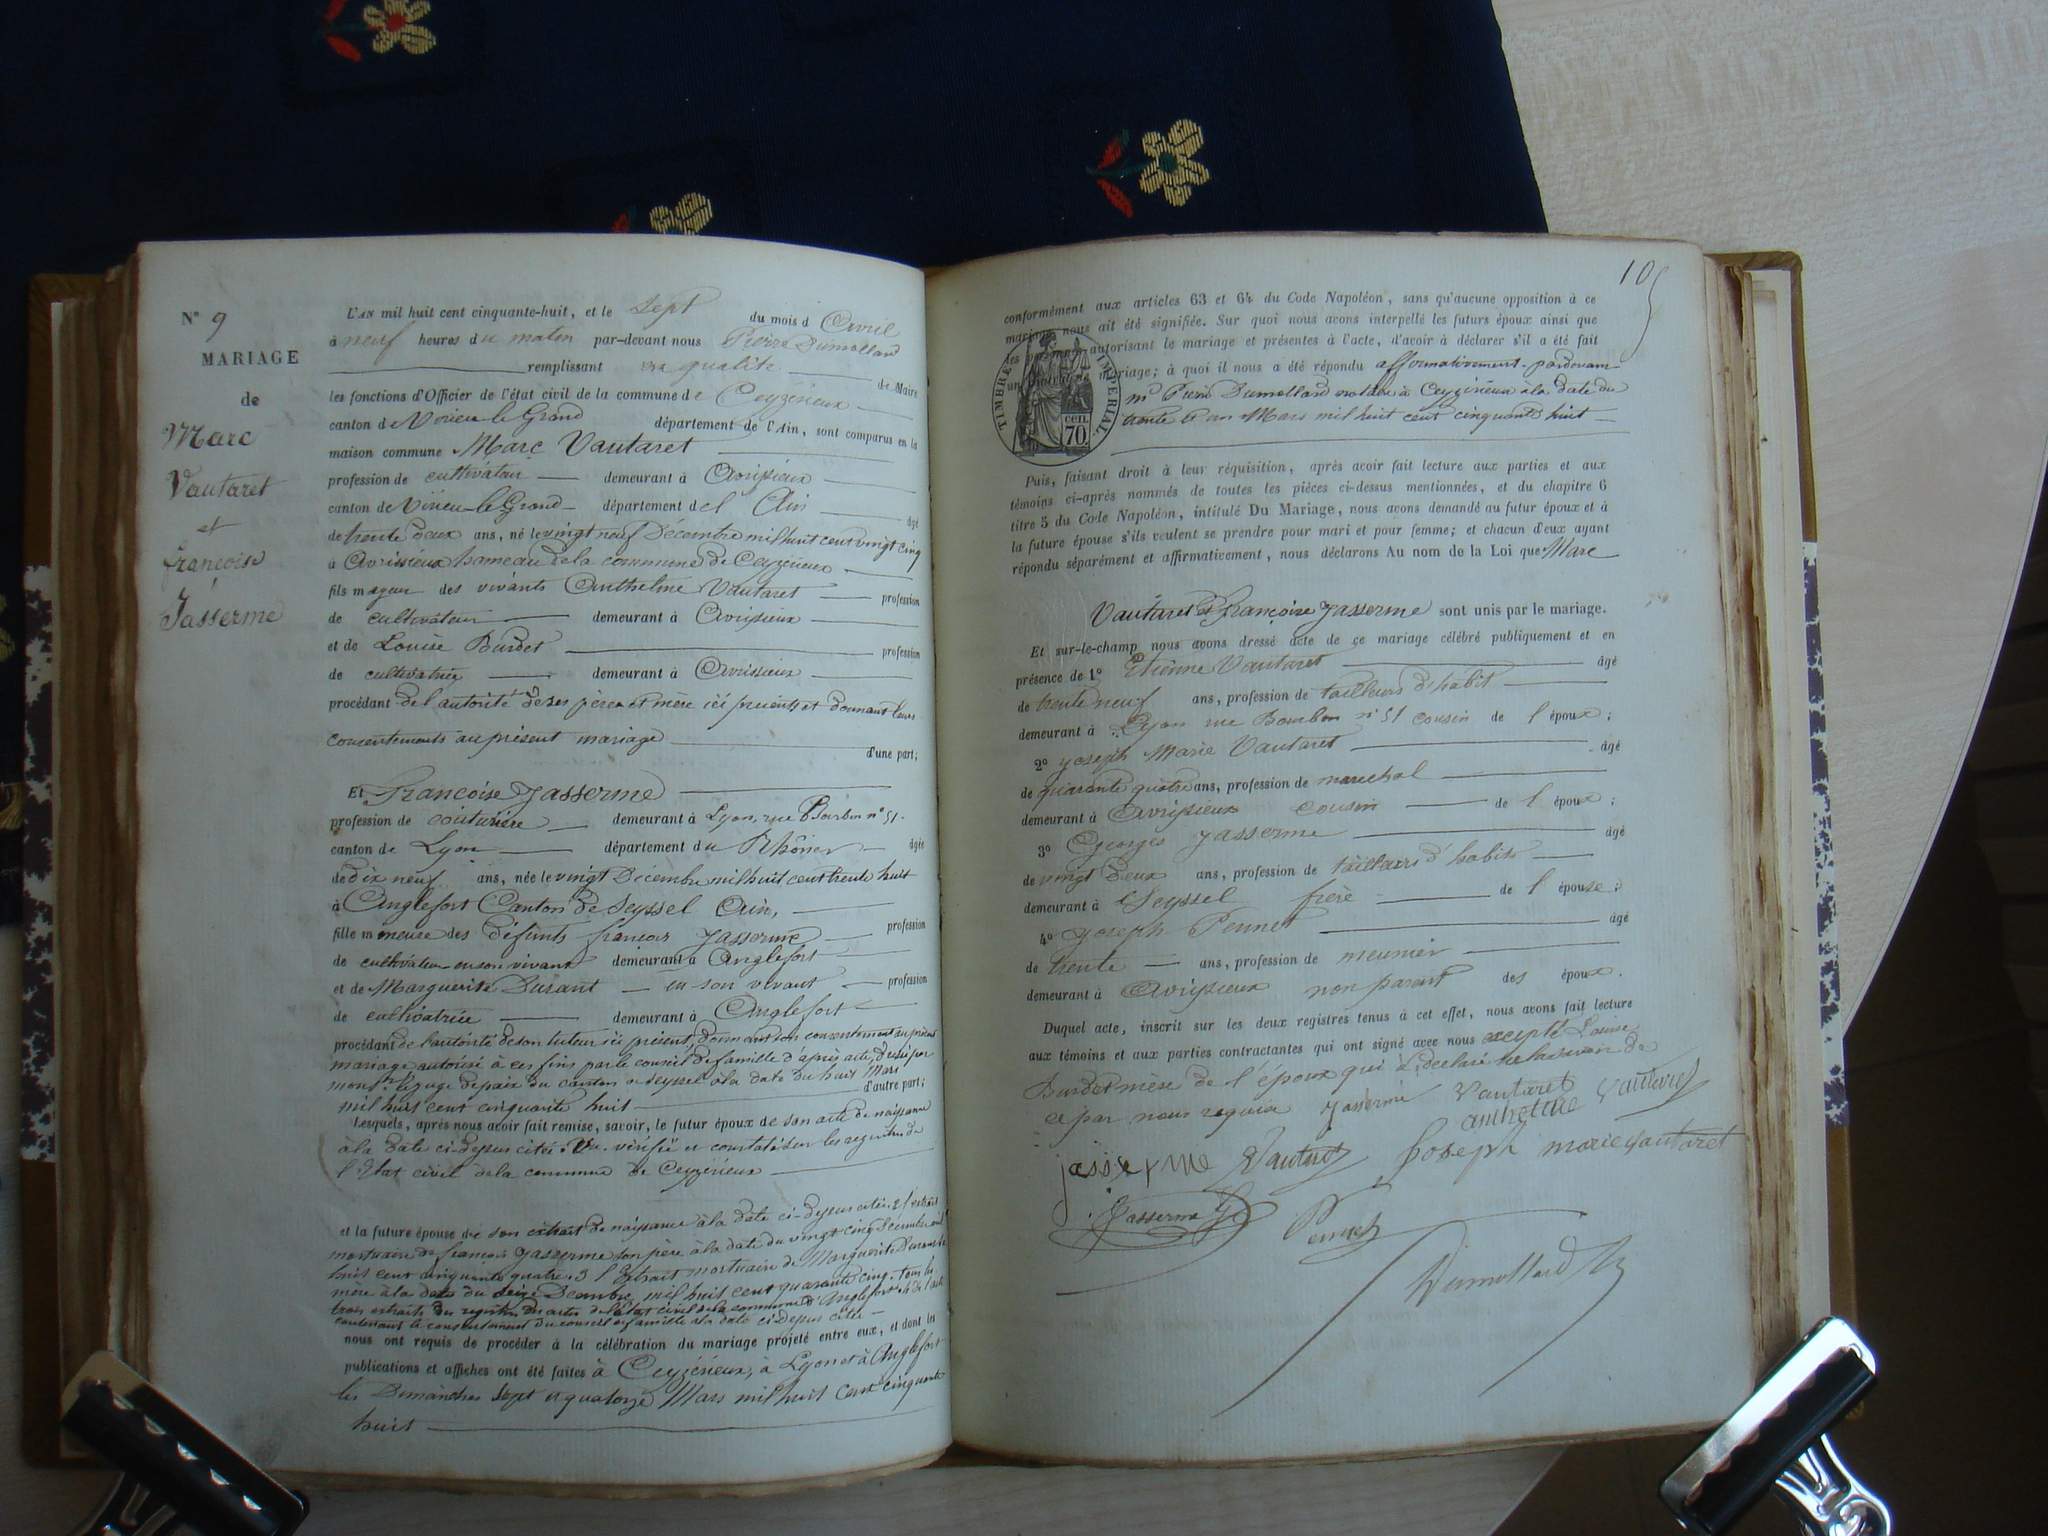 N° 9
MARIAGE
de
Marc
Vautaret
et
françoise
Jasserme
L'AN mil huit cent cinquante-huit, et le sept du mois d Avril
à neuf heures du matin par-devant nous Pierre Dumollard
remplissant en qualité de Maire
les fonctions d'Officier de l'état civil de la commune de Ceyzérieux
canton de Virieu-le-Grand département de l'Ain, sont comparus en la
maison commune Marc Vautaret
profession de cultivateur demeurant à Avrissieux
canton de Virieu-le-Grand département de l'Ain âgé
de trente deux ans, né le vingt neuf Décembre mil huit cent vingt cinq
à Avrissieux hameau de la commune de Ceyzérieux
fils majeur des vivants Anthelme Vautaret profession
de cultivateur demeurant à Avrissieux
et de Louise Burdet profession
de cultivatrice demeurant à Avrissieux
procédant de l'autorité de ses père et mère ici présents et donnant leurs
consentements au présent mariage d'une part;
Et Francoise Jasserme
profession de couturière demeurant à Lyon, rue Bourbon n° 51.
canton de Lyon département du Rhône âgée
de dix neuf ans, née le vingt Décembre mil huit cent trente huit
à Anglefort Canton de Seyssel Ain,
fille mineure des défunts françois Jasserme profession
de cultivateur en son vivant demeurant à Anglefort
et de Marguerite Durant en son vivant profession
de cultivatrice demeurant à Anglefort
procédant de l'autorité de son tuteur ici présent, donnant son consentement au présent
mariage autorisé à ces fins par le conseil de famille d'après acte, dressé par
le juge de paix du canton de Seyssel à la date du huit Mars
mil huit cent cinquante huit d'autre part;
Lesquels, après nous avoir fait remise, savoir, le futur époux de son acte de naissance
à la date ci-dessus citée. Vu, vérifié et constaté sur les registres de
l'Etat civil de la commune de Ceyzérieux
et la future épouse de son extrait de naissance à la date ci-dessus citée. 2 l'extrait
mortuaire de françois Jasserme son père à la date du vingt cinq Décembre mil
huit cent cinquante quatre. 3 l'Extrait mortuaire de Marguerite Durant sa
mère à la date du seize Décembre mil huit cent quarante cinq. tous les
trois extraits des registres des actes de l'Etat civil de la commune d'Anglefort. 4 de l'acte
contenant le consentement du conseil de famille à la date ci-dessus citée
nous ont requis de procéder à la célébration du mariage projeté entre eux, et dont les
publications et affiches ont été faites à Ceyzérieux, à Lyon et à Anglefort
les Dimanches sept et quatorze Mars mil huit cent cinquante
huit
105
conformément aux articles 63 et 64 du Code Napoléon, sans qu'aucune opposition à ce
mariage nous ait été signifiée. Sur quoi nous avons interpellé les futurs époux ainsi que
les personnes autorisant le mariage et présentes à l'acte, d'avoir à déclarer s'il a été fait
un contrat de mariage; à quoi il nous a été répondu affirmativement. pardevant
Mᵉ Pierre Dumollard notaire à Ceyzérieux à la date du
trente et un Mars mil huit cent cinquante huit
TIMBRE IMPERIAL.
cen.
70.
Puis, faisant droit à leur réquisition, après avoir fait lecture aux parties et aux
témoins ci-après nommés de toutes les pièces ci-dessus mentionnées, et du chapitre 6
titre 5 du Code Napoléon, intitulé Du Mariage, nous avons demandé au futur époux et à
la future épouse s'ils veulent se prendre pour mari et pour femme; et chacun d'eux ayant
répondu séparément et affirmativement, nous déclarons Au nom de la Loi que Marc
Vautaret et françoise Jasserme sont unis par le mariage.
Et sur-le-champ nous avons dressé acte de ce mariage célébré publiquement et en
présence de 1° Etienne Vautaret âgé
de trente neuf ans, profession de tailleurs d'habit
demeurant à Lyon rue Bourbon n° 51 cousin de l'époux;
2° Joseph Marie Vautaret âgé
de quarante quatre ans, profession de marechal
demeurant à Avrissieux cousin de l'époux;
3° Georges Jasserme âgé
de vingt deux ans, profession de tailleurs d'habits
demeurant à Seyssel frère de l'épouse;
4° Joseph Pernet âgé
de trente ans, profession de meunier
demeurant à Avrissieux non parent des époux.
Duquel acte, inscrit sur les deux registres tenus à cet effet, nous avons fait lecture
aux témoins et aux parties contractantes qui ont signé avec nous excepté Louise
Burdet mère de l'époux qui a déclaré ne le savoir de
ce par nous requise Jasserme Vautaret
anthelme Vautaret
jasserme Vautaret Joseph marie vautaret
Jasserme G Pernet
Dumollard